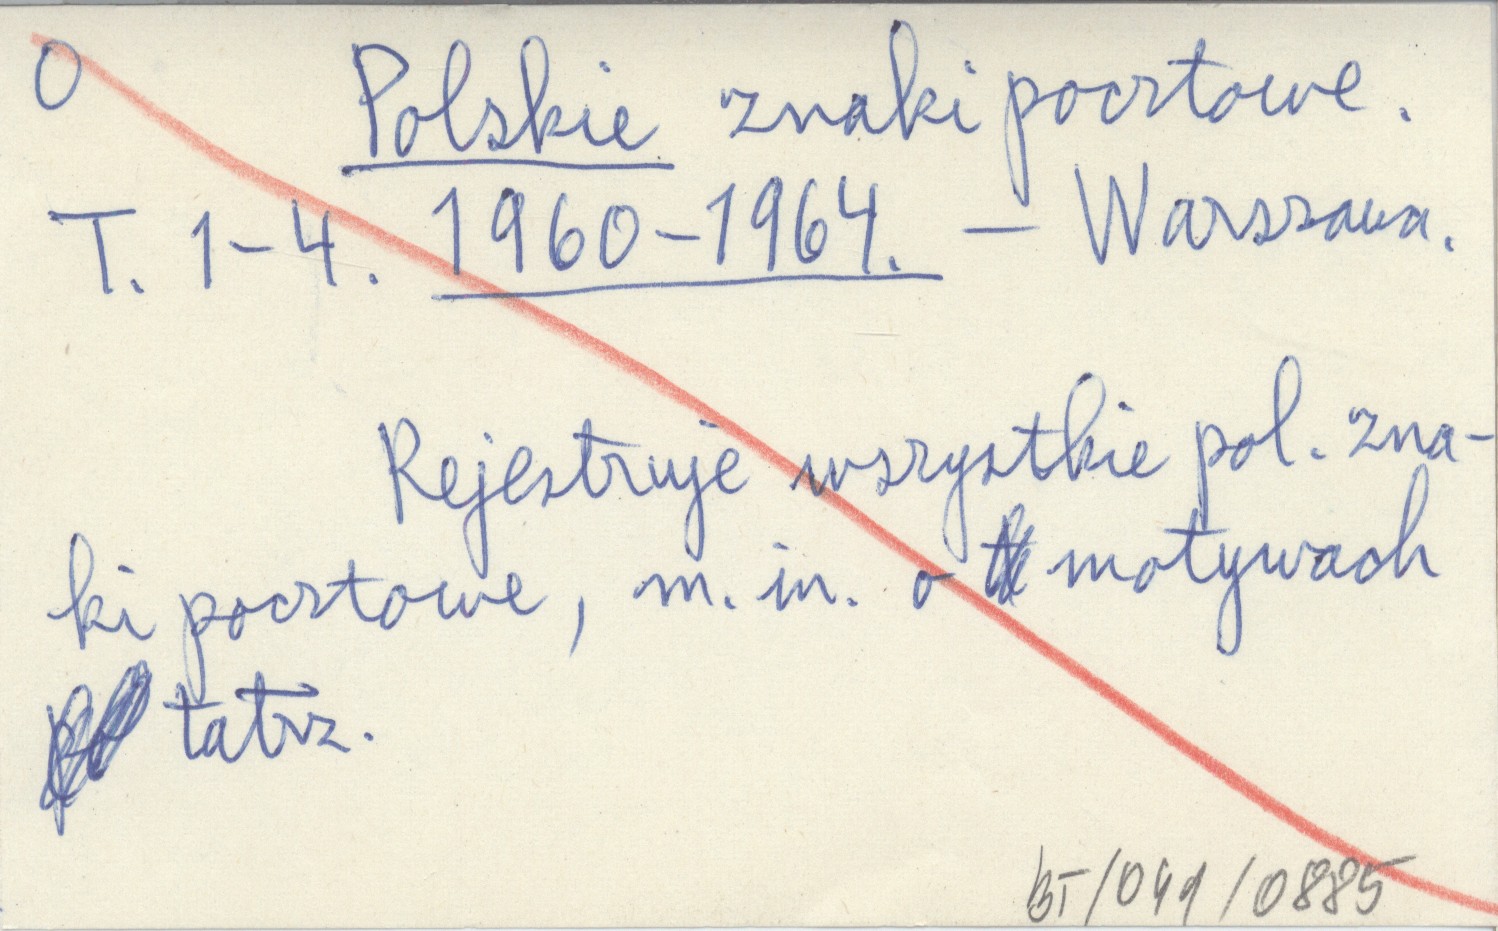 O Polskie znaki pocztowe.
T. 1-4. 1960-1964. — Warszawa.
Rejestruje wszystkie pol. zna-
ki pocztowe, m. in. o motywach
tatrz.
BT/041/0885